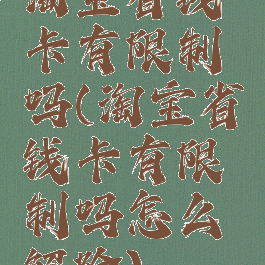 淘宝省钱
卡有限制
吗(淘宝省
钱卡有限
制吗怎么
解除)